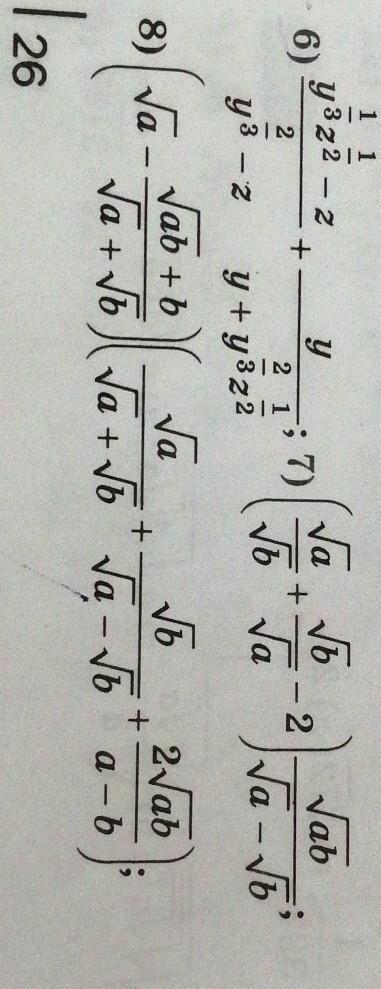 6) \frac{y^{\frac{1}{3}}z^{\frac{1}{2}} - z}{y^{\frac{2}{3}} - z} + \frac{y}{y + y^{\frac{2}{3}}z^{\frac{1}{2}}}; 7) \left(\frac{\sqrt{a}}{\sqrt{b}} + \frac{\sqrt{b}}{\sqrt{a}} - 2\right)\frac{\sqrt{ab}}{\sqrt{a} - \sqrt{b}};
8) \left(\sqrt{a} - \frac{\sqrt{ab} + b}{\sqrt{a} + \sqrt{b}}\right)\left(\frac{\sqrt{a}}{\sqrt{a} + \sqrt{b}} + \frac{\sqrt{b}}{\sqrt{a} - \sqrt{b}} + \frac{2\sqrt{ab}}{a - b}\right);
26